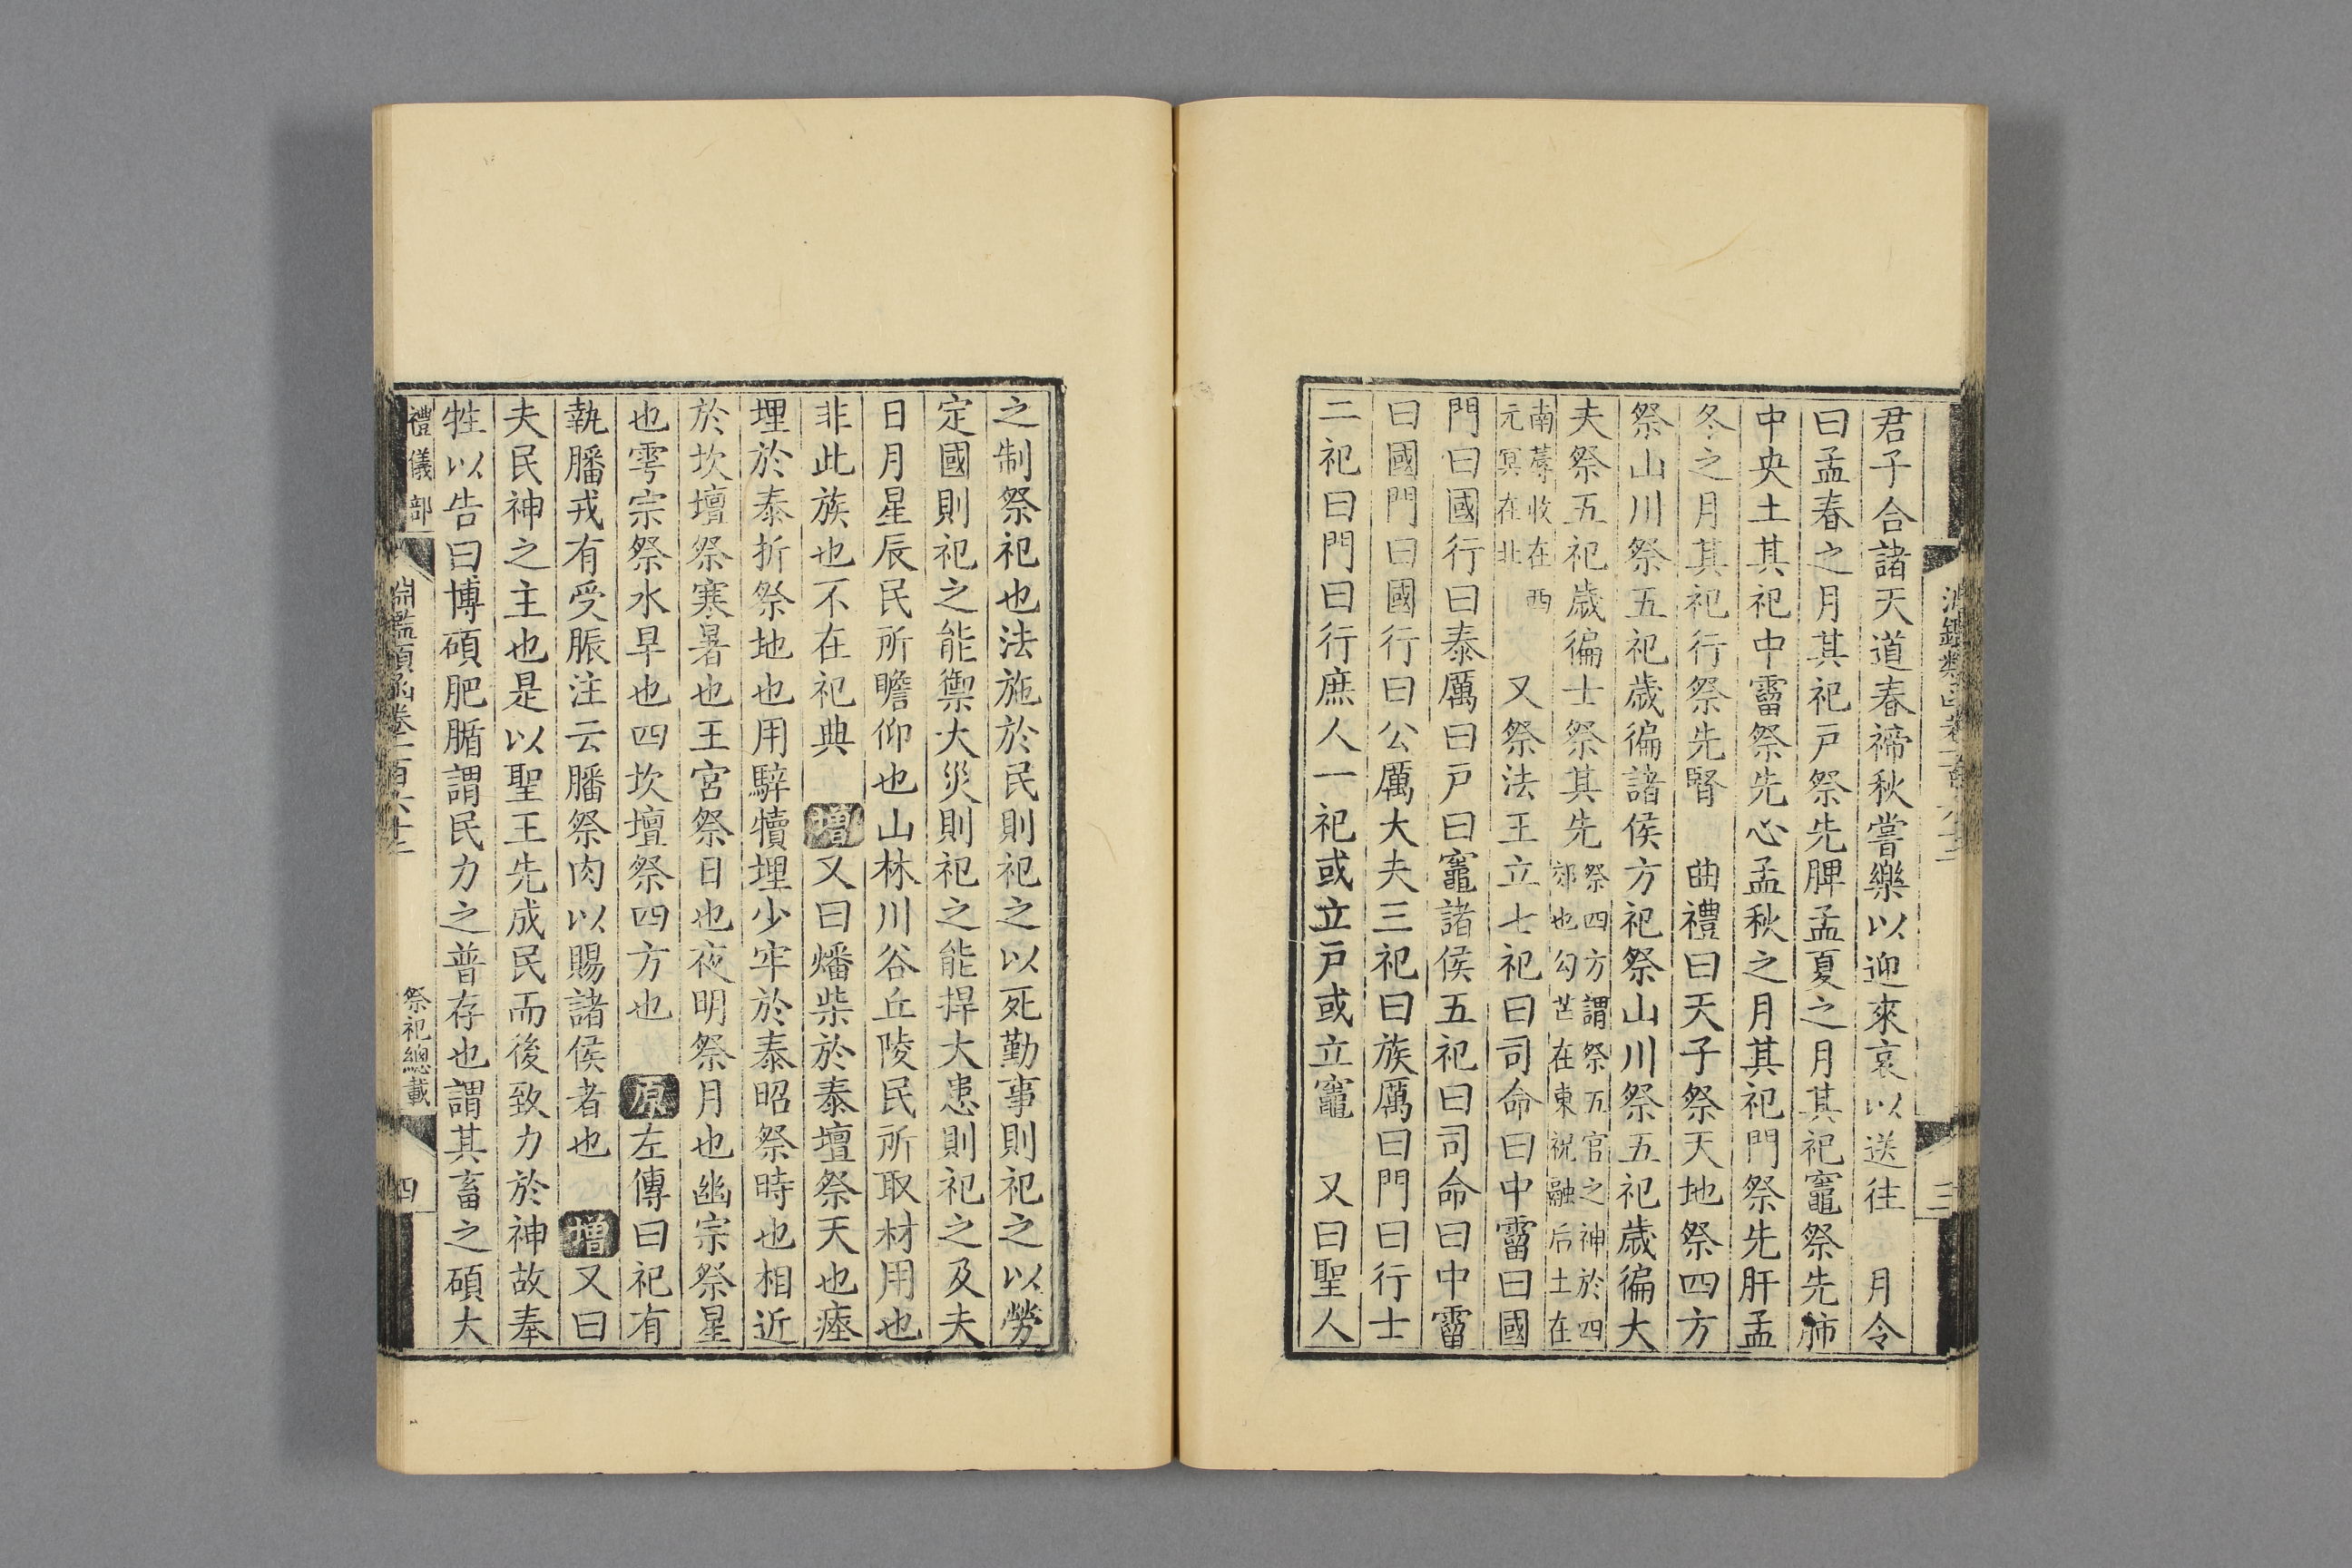 君子合諸天道春禘秋嘗樂以迎來哀以送往　月令
曰孟春之月其祀戶祭先脾孟夏之月其祀竈祭先肺
中央土其祀中霤祭先心孟秋之月其祀門祭先肝孟
冬之月其祀行祭先腎　曲禮曰天子祭天地祭四方
祭山川祭五祀歲徧諸侯方祀祭山川祭五祀歲徧大
夫祭五祀歲徧士祭其先祭四方謂祭五官之神於四郊也勾芒在東祝融后土在
南蓐收在西元冥在北　又祭法王立七祀曰司命曰中霤曰國
門曰國行曰泰厲曰戶曰竈諸侯五祀曰司命曰中霤
曰國門曰國行曰公厲大夫三祀曰族厲曰門曰行士
二祀曰門曰行庶人一祀或立戶或立竈　又曰聖人
之制祭祀也法施於民則祀之以死勤事則祀之以勞
定國則祀之能禦大災則祀之能捍大患則祀之及夫
日月星辰民所瞻仰也山林川谷丘陵民所取材用也
非此族也不在祀典　增又曰燔柴於泰壇祭天也瘞
埋於泰折祭地也用騂犢埋少牢於泰昭祭時也相近
於坎壇祭寒暑也王宮祭日也夜明祭月也幽宗祭星
也雩宗祭水旱也四坎壇祭四方也　原左傳曰祀有
執膰戎有受脤注云膰祭肉以賜諸侯者也　增又曰
夫民神之主也是以聖王先成民而後致力於神故奉
牲以告曰博碩肥腯謂民力之普存也謂其畜之碩大
禮儀部　淵鑑類函卷一百六十二　祭祀總載　四